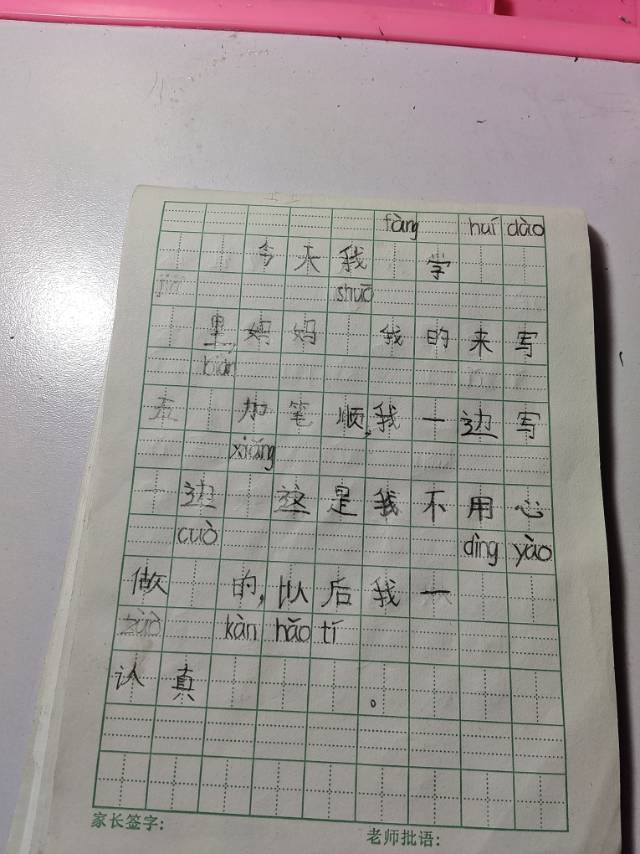 fàng huí dào
今天我 学
jiā shuō
里,妈妈 我的来写
biàn
五 加笔顺,我一边写
xiǎng
一边 这是我不用心
cuò dìng yào
做 的,以后我一
zuò kàn hǎo tí
认真 。
家长签字:
老师批语: